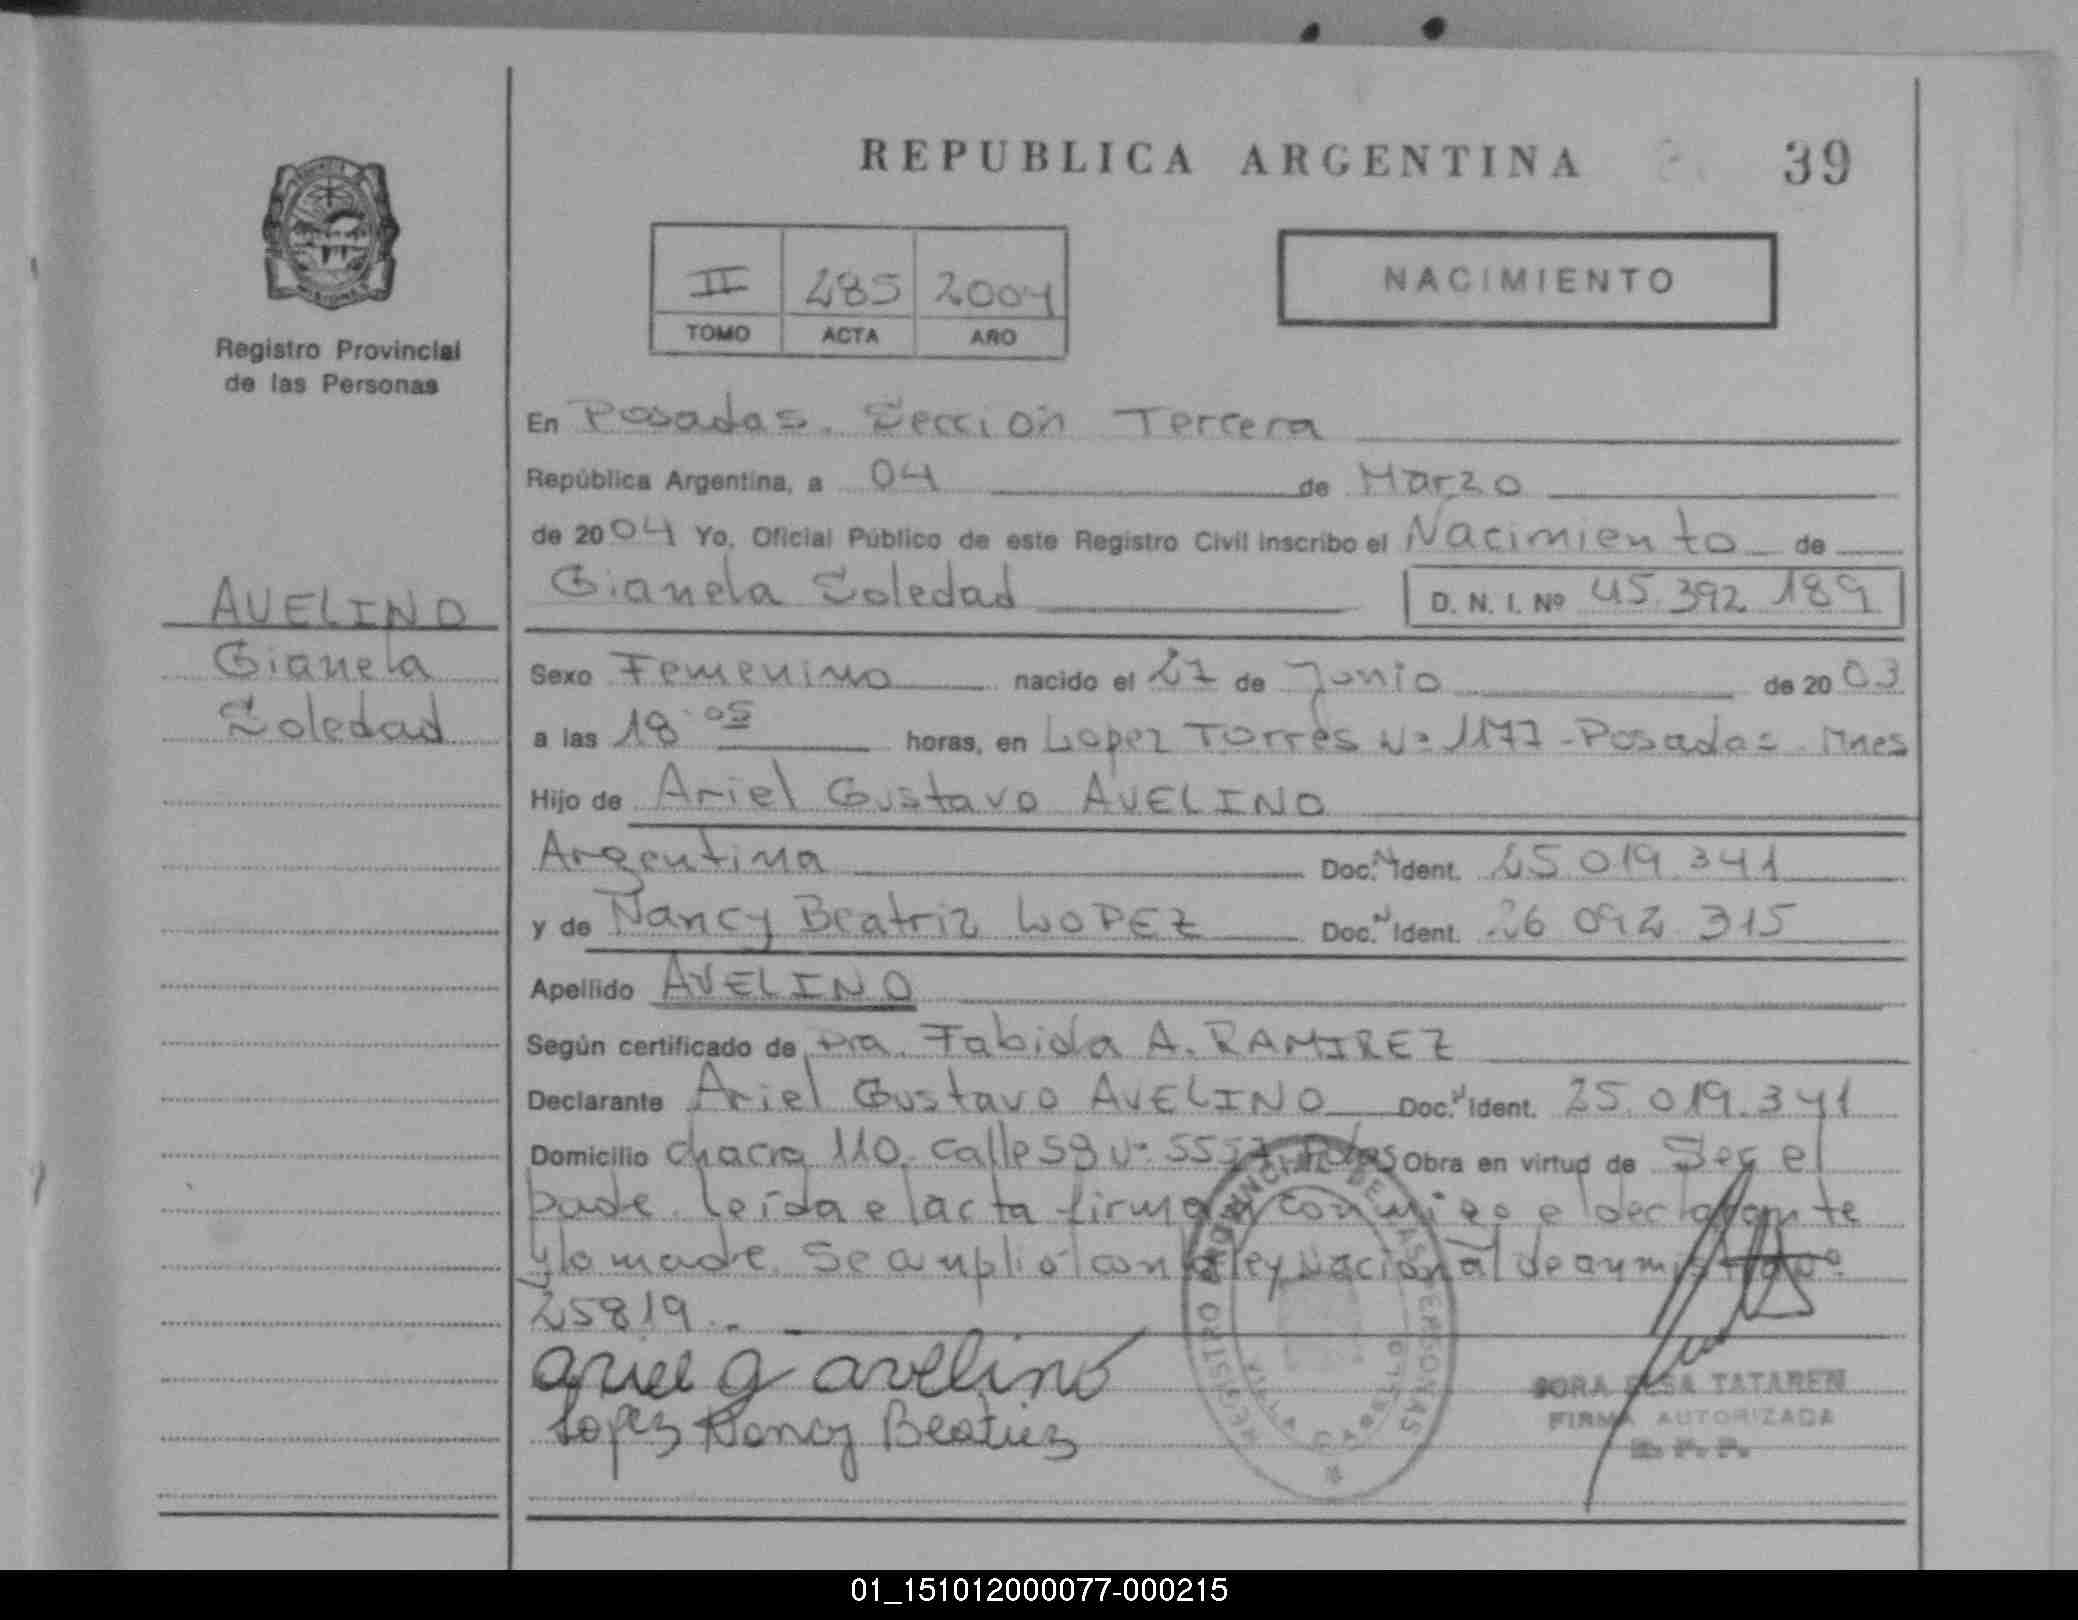 REPUBLICA ARGENTINA 39
II 285 2004
TOMO ACTA AÑO
NACIMIENTO
Registro Provincial
de las Personas
AVELINO
Gianela
Soledad
En Posadas. Sección Tercera
República Argentina, a 04 de Marzo
de 2004 Yo, Oficial Público de este Registro Civil inscribo el Nacimiento de
Gianela Soledad D. N. I. Nº 45.392.189
Sexo Femenino nacido el 27 de Junio de 2003
a las 18.05 horas, en Lopez Torres Nº 1177 - Posadas. Mnes
Hijo de Ariel Gustavo AVELINO
Argentina Doc. N Ident. 25.019.341
y de Nancy Beatriz LOPEZ Doc. N Ident. 26.092.315
Apellido AVELINO
Según certificado de Dra. Fabiola A. RAMIREZ
Declarante Ariel Gustavo AVELINO Doc. N Ident. 25.019.341
Domicilio chacra 110. calle 59 Nº Obra en virtud de Ser el
padre. Leída el acta firman conmigo el declarante
y la madre. Se amplió con la ley Nacional de
25819.-
ariel g avelino
Lopez Nancy Beatriz
REGISTRO PROVINCIAL DE LAS PERSONAS
VILLA CABELLO
TATAREN
FIRMA AUTORIZADA
R. P. P.
01_151012000077-000215